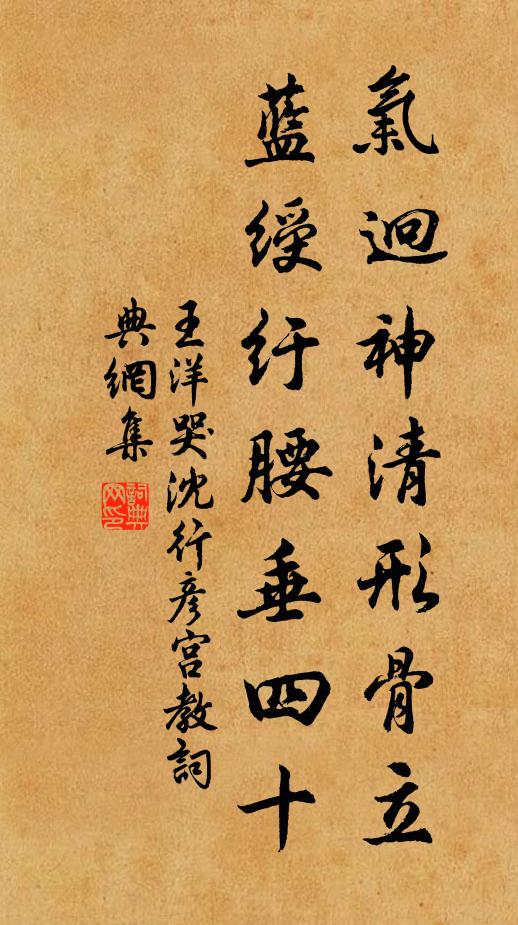 氣迥神清形骨立
藍綬紆腰垂四十
王洋哭沈行彥宮教詞
典網集
詞典網印